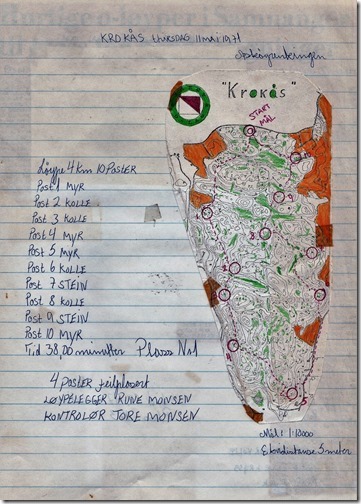 KROKÅS tHURSDAG 11 MAI 1971
"Krokås"
START
MÅL
Løype 4 km 10 POSTER
Post 1 MYR
Post 2 KOLLE
Post 3 KOLLE
Post 4 MYR
Post 5 MYR
Post 6 KOLLE
Post 7 STEIN
Post 8 KOLLE
Post 9 STEIN
Post 10 MYR
Tid 38,00 minutter Plass Nr 1
4 POSTER feilplasert
LØYPELEGGER RUNE MONSEN
KONTROLØR TORE MONSEN
Mål 1:10000
Ekvidistanse 5 meter